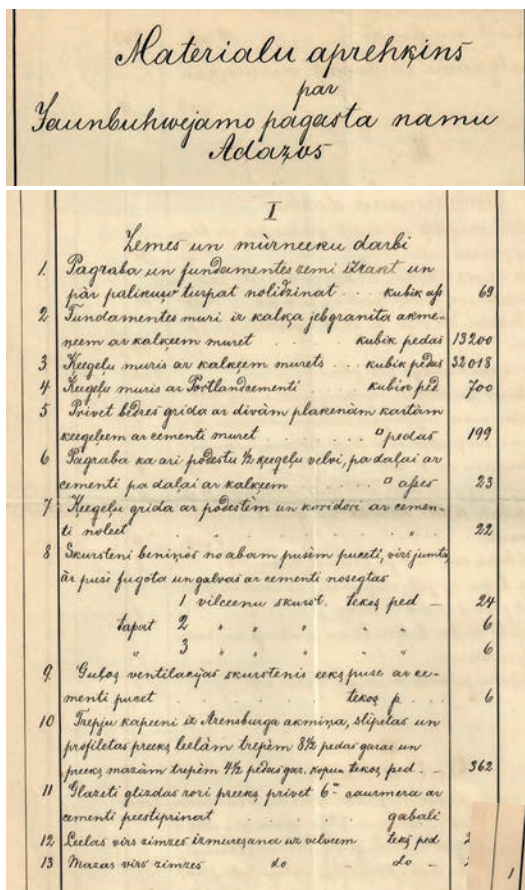 Materialu aprehķins
par
Jaunbuhwejamo pagasta namu
Adažos
I
Zemes un mūrneeku darbi
1. Pagraba un fundamentes zemi izrakt un
pār palikušo turpat nolidzinat . . . kubik ass 69
2 Fundamentes muri iz kalķa jeb granita akme-
ņeem ar kalķeem muret . . . kubik pedas 13200
3 Keegeļu muris ar kalķeem murets . . . kubik pedas 32018
4 Keegeļu muris ar Portlandcementi . kubik ped. 700
5 Privet bedres grida ar divām plakenām kartām
keegeļeem ar cementi muret . . . □ pedas 199
6 Pagraba ka ari podestu ½ keegeļu velvi, pa daļai ar
cementi pa daļai ar kalķeem . . . □ asses 23
7 Keegeļu grida ar podestēm un koridori ar cemen-
ti noleet . . . " 22
8 Skursteni beniņos no abam pusēm puceti, virs jumta
ār pusē fugota un galvai ar cementi nosegtas
1 vilceenu skurst. tekoš ped – 24
tapat 2 " " " " " 6
" 3 " " " " " 6
9. Guļoš ventilacijas skurstenis eekš puse ar ce-
menti pucet tekoš p. . . . 6
10 Trepju kapeeni iz Arensburga akmiņa, slipetas un
profiletas preekš leelām trepēm 8½ pedas garas un
preekš mazām trepēm 4½ pedas gar. kopum tekoš ped. – 362
11 Glazeti glizdas rori preekš privet 6" caurmera ar
cementi peestiprinat . . . gabali
12 Leelas virs zimzes izmuresana uz velveem tekš ped 2
13 Mazas virs zimzes do – do –
1